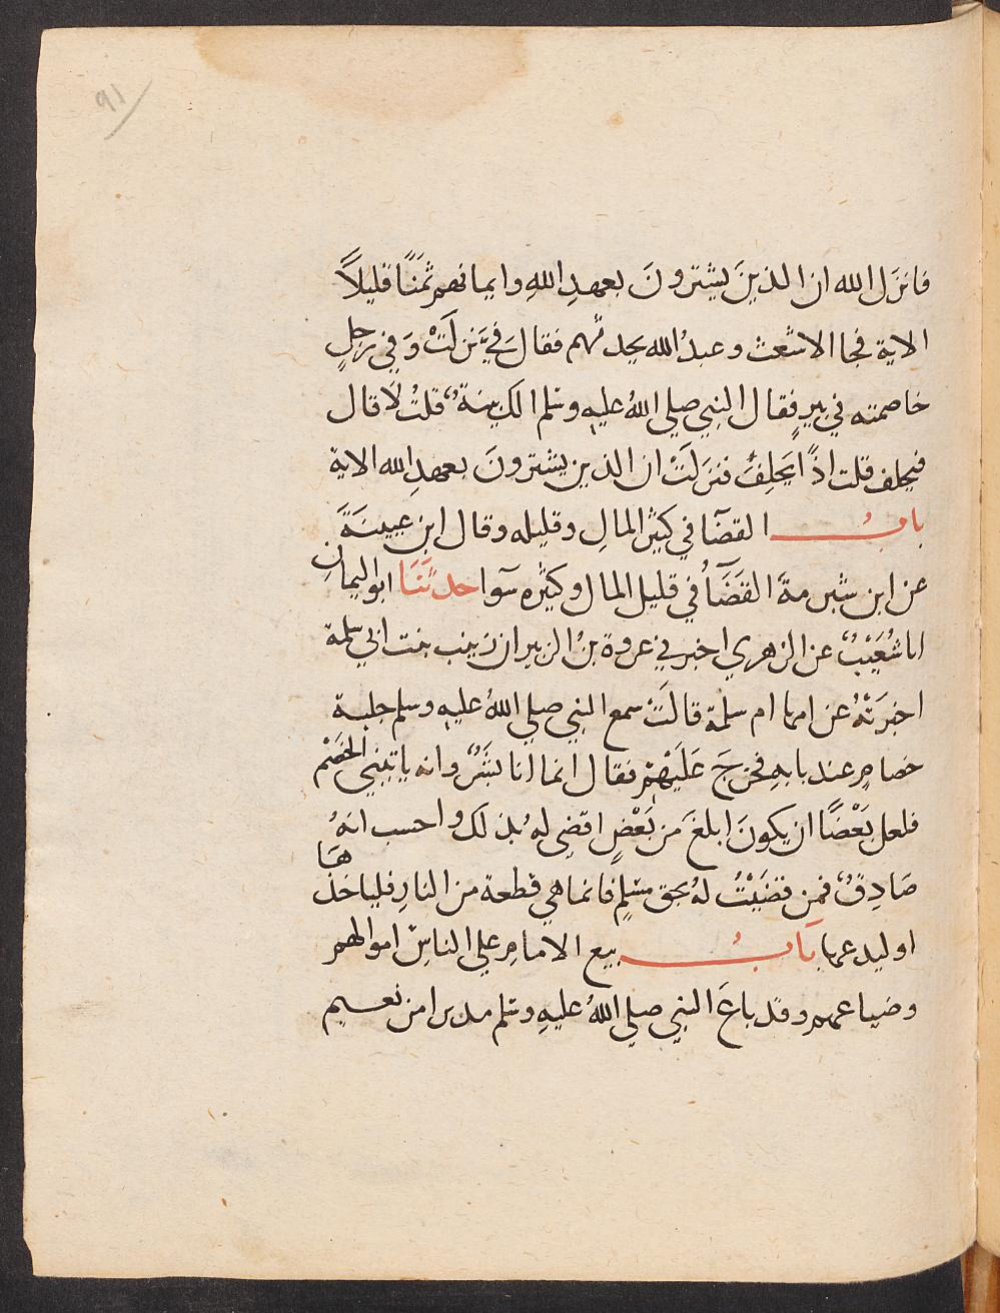 ٩١
فانزل الله ان الذينَ يشترونَ بعهدِ اللهِ وايمانهم ثمَنًا قليلاً
الاية فجا الاشعث وعبدُ الله يحدثهم فقالَ فيَّ نزلَتْ وَفي رَجلٍ
خاصمته في بيرٍ فقال النبي صلي اللهُ عليه وسلم الك بينةٌ قلتُ لَا قال
فيحلف قلت اذًا يَحلِفُ فنزلَتْ ان الذين يشترونَ بعهدِ الله الاية
بابُ القضَآ في كثير المالِ وقليله وقال ابن عيينَةَ
عن ابن شبرمةَ القَضَآُ في قليل المال وكثيره سَوا حدثَنَا ابو اليمانِ
انا شُعَيْبٌ عن الزهري اخبرني عروة بنُ الزبير ان زينب بنت ابي سلمة
اخبرَتْهُ عن امها ام سلمة قالَتْ سمع النبي صلي اللهُ عليه وسلم جلبة
خصامٍ عند بابِهِ فخرَجَ عَلَيْهِمْ فقال انما انا بشَرٌ وانه ياتيني الخصْم
فلعل بَعْضًا ان يكونَ ابلغَ من بَعْضٍ اقضي لهُ بذلك واحسب انهُ
صَادِقٌ فمن قضَيْتُ لهُ بحق مسْلمٍ فانما هي قطعة من النارِ فلياخذْهَا
او ليدعها بَابُ بيع الامامِ علي الناسِ اموالهم
وضياعهم وقد باعَ النبي صلي اللهُ عليهِ وسلم مدبرا من نعيم